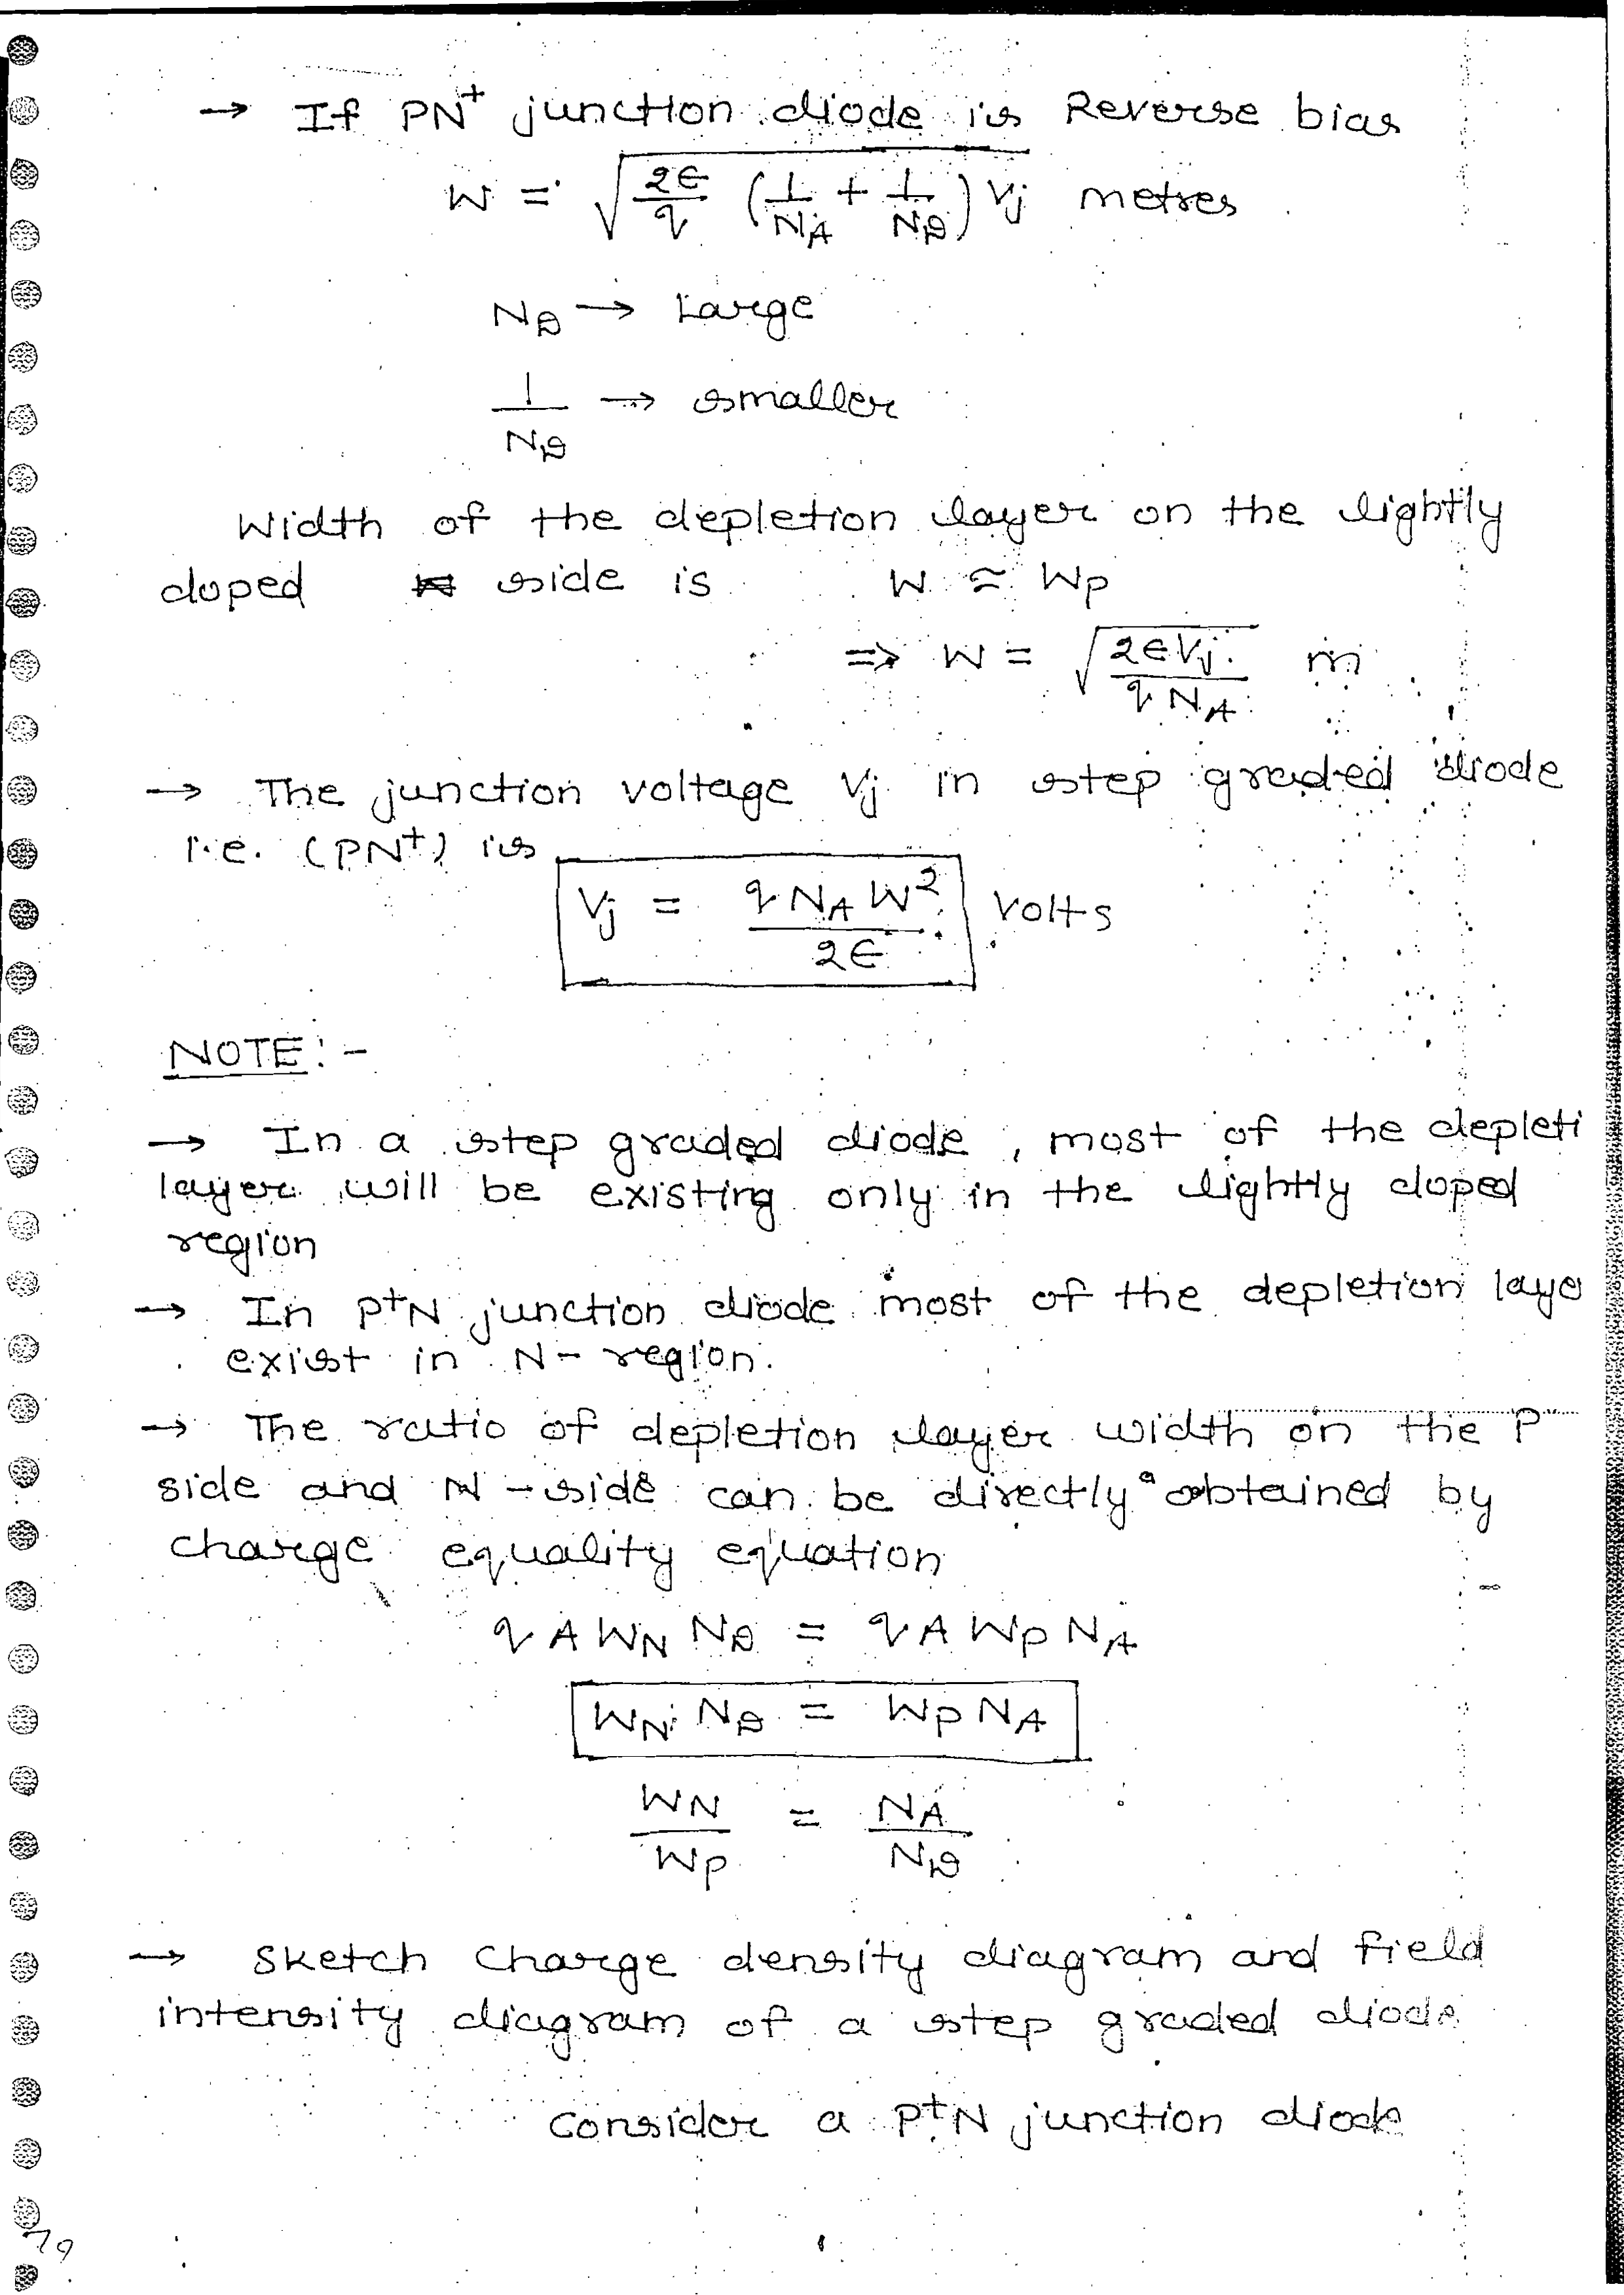 → If PN⁺ junction diode is Reverse bias
W = √(2ϵ/q (1/N_A + 1/N_D) Vj) metres
N_D → Large
1/N_D → smaller
Width of the depletion layer on the lightly
doped side is W ≈ Wp
⇒ W = √(2ϵVj / qN_A) m
→ The junction voltage Vj in step graded diode
i.e. (PN⁺) is
Vj = qN_A W² / 2ϵ Volts
NOTE:-
→ In a step graded diode, most of the depleti
layer will be existing only in the lightly doped
region
→ In P⁺N junction diode most of the depletion laye
exist in N-region.
→ The ratio of depletion layer width on the P
side and N-side can be directly obtained by
charge equality equation
q A W_N N_D = q A W_P N_A
W_N N_D = W_P N_A
W_N / W_P = N_A / N_D
→ Sketch Charge density diagram and field
intensity diagram of a step graded diode
Consider a P⁺N junction diode
79